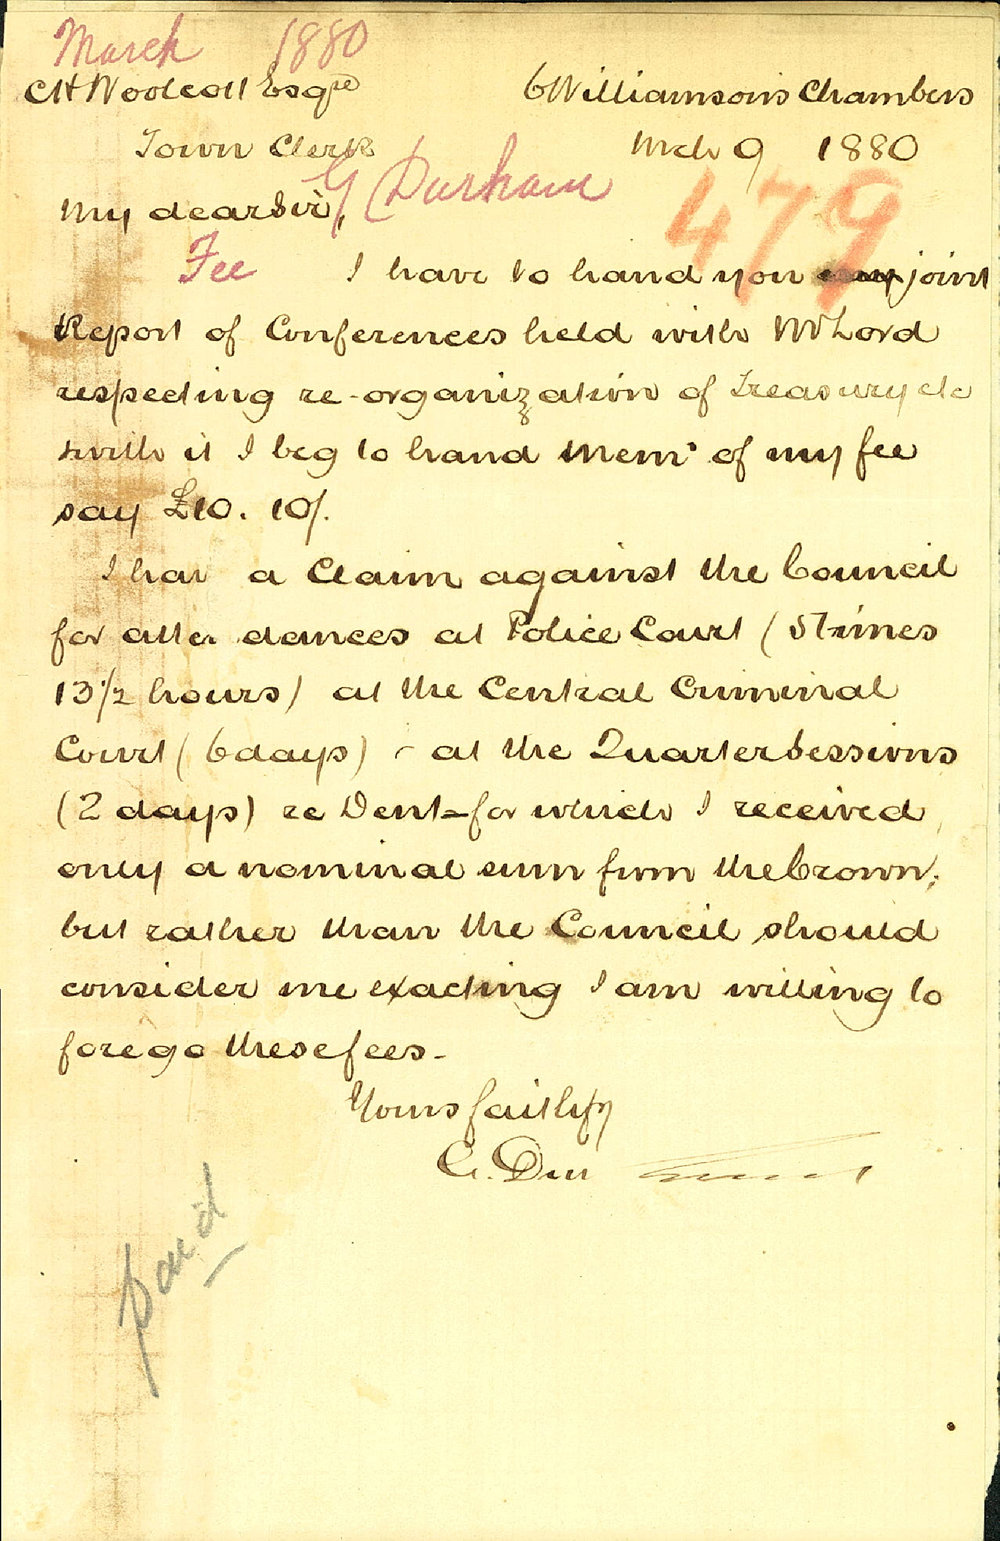 March 1880
CH Woolcott Esqre 6 Williamsons Chambers
Town Clerk Mch 9 1880
G Durham
My dear Sir, 479
Fee I have to hand you joint
Report of Conferences held with Mr Lord
respecting re-organization of Treasury etc
with it I beg to hand Memo of my fee
say £10. 10/.
I have a Claim against the Council
for atten dances at Police Court (5 times
13 1/2 hours) at the Central Criminal
Court (6 days) - at the Quarter Sessions
(2 days) re Dent - for which I received
only a nominal sum from the Crown;
but rather than the Council should
consider me exacting I am willing to
forego these fees -
Yours faithfy
G. Dur
Paid